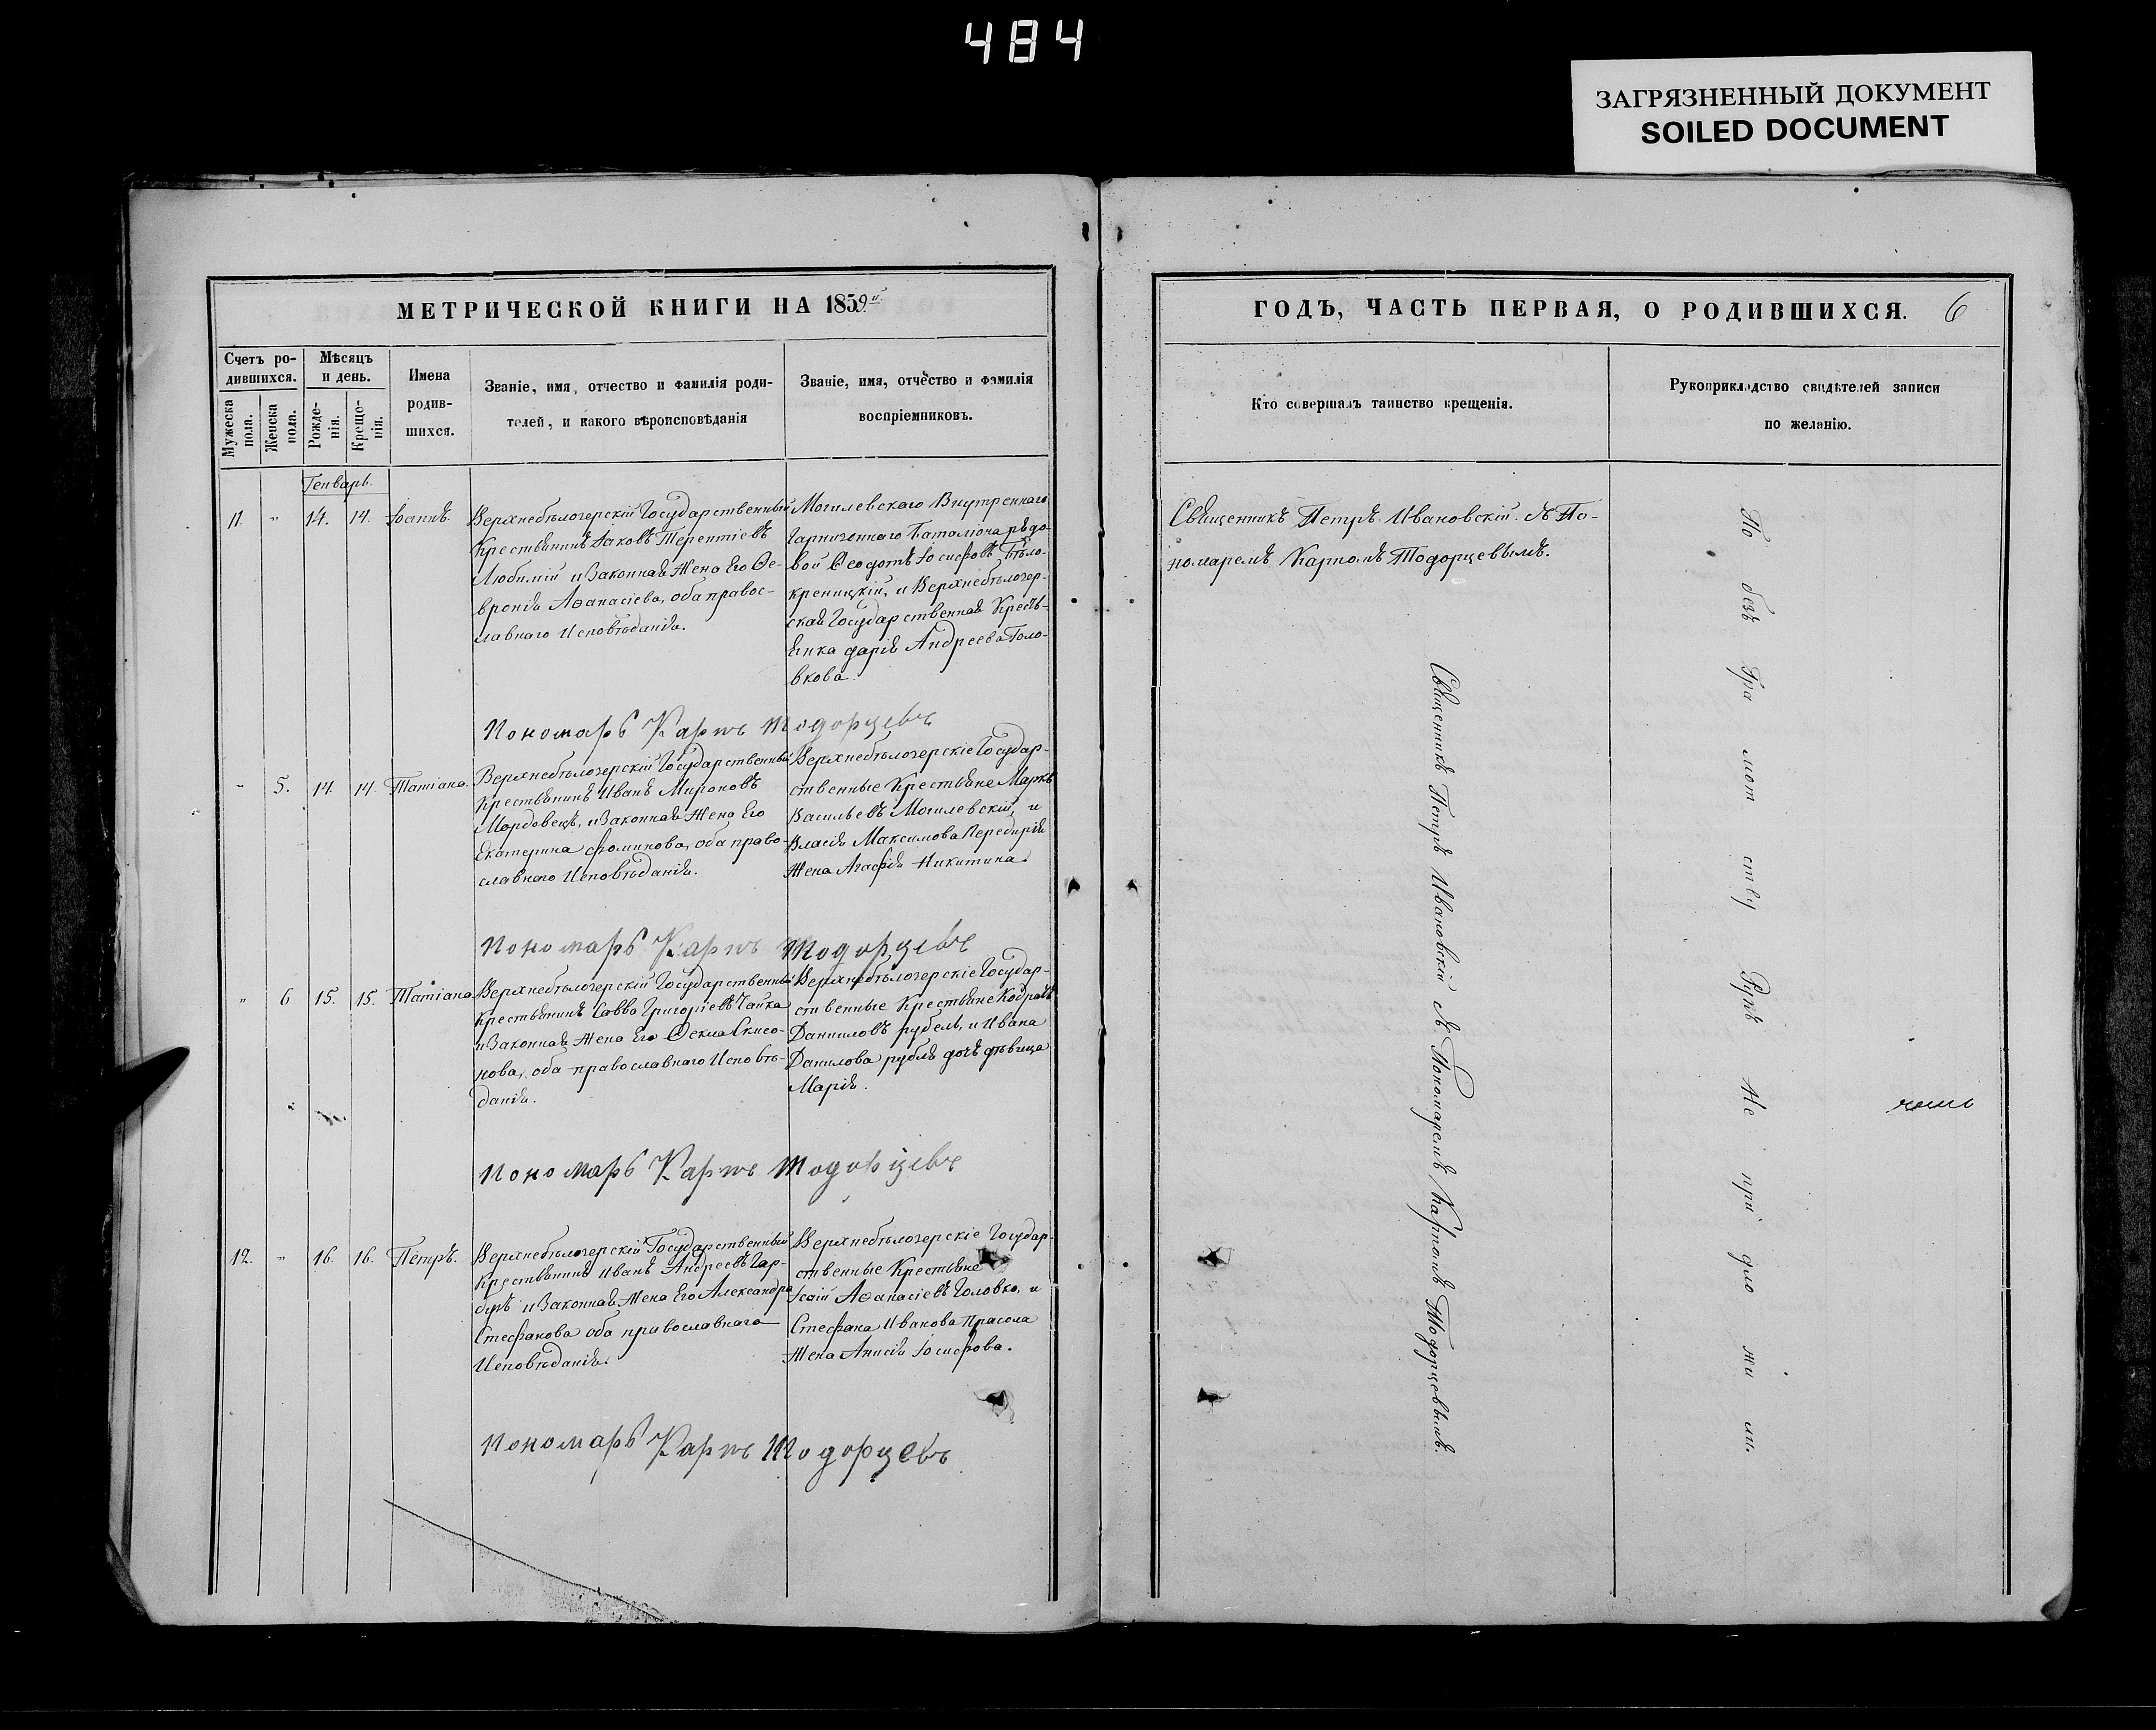 484
ЗАГРЯЗНЕННЫЙ ДОКУМЕНТ
SOILED DOCUMENT
МЕТРИЧЕСКОЙ КНИГИ НА 1859й
Счетъ ро-
дившихся.
Мужеска
пола.
Женска
пола.
Мѣсяцъ
и день.
Рожде-
нія.
Креще-
нія.
Имена
родив-
шихся.
Званіе, имя, отчество и фамилія роди-
телей, и какого вѣроисповѣданія
Званіе, имя, отчество и фамилія
воспріемниковъ.
Генварь.
11. " 14. 14. Іоаннъ.
Верхнебѣлозерскій Государственный
Крестьянинъ Іаковъ Терентіевъ
Любимій и Законная Жена Его Ѳе-
вронія Аѳанасіева, оба правос-
лавнаго Исповѣданія.
Могилевскаго Внутренняго
Гарнизоннаго Баталіона рядо-
вой Ѳеодотъ Іосифовъ Бѣло-
креницкій, и Верхнебѣлозер-
ская Государственная Кресть-
янка Дарія Андреева Голо-
вкова.
Пономарь Карпъ Тодорцевъ
" 5. 14. 14. Татіана.
Верхнебѣлозерскій Государственный
Крестьянинъ Иванъ Мироновъ
Мордовецъ, и Законная Жена Его
Екатерина Фоминова, оба право-
славнаго Исповѣданія.
Верхнебѣлозерскіе Государ-
ственные Крестьяне Маркъ
Васильевъ Могилевскій, и
Власія Максимова Перебирія
Жена Агафія Никитина.
Пономарь Карпъ Тодорцевъ
" 6 15. 15. Татіана
Верхнебѣлозерскій Государственный
Крестьянинъ Савва Григоріевъ Чайка
и Законная Жена Его Ѳекла
нова, оба православнаго Исповѣ-
данія.
Верхнебѣлозерскіе Государ-
ственные Крестьяне Кодратъ
Данииловъ рубель, и Ивана
Данилова рубля дочь дѣвица
Марія.
Пономарь Карпъ Тодорцевъ
12. " 16. 16. Петръ.
Верхнебѣлозерскій Государственный
Крестьянинъ Иванъ Андреевъ Гар-
бузъ и Законная Жена Его Александра
Стефанова оба православнаго
Исповѣданія.
Верхнебѣлозерскіе Государ-
ственные Крестьяне
Ісаій Аѳанасіевъ Головко, и
Стефана Иванова Прасола
Жена Анисія Іосифова.
Пономарь Карпъ Тодорцевъ
ГОДЪ, ЧАСТЬ ПЕРВАЯ, О РОДИВШИХСЯ. 6
Кто совершалъ таинство крещенія.
Рукоприкладство свидѣтелей записи
по желанію.
Священникъ Петръ Ивановскій. Съ По-
номаремъ Карпомъ Тодорцевымъ.
Священникъ Петръ Ивановскій Съ Пономаремъ Карпомъ Тодорцевымъ.
По безъ Гра мот ству Рукъ Не при ло жи ли.